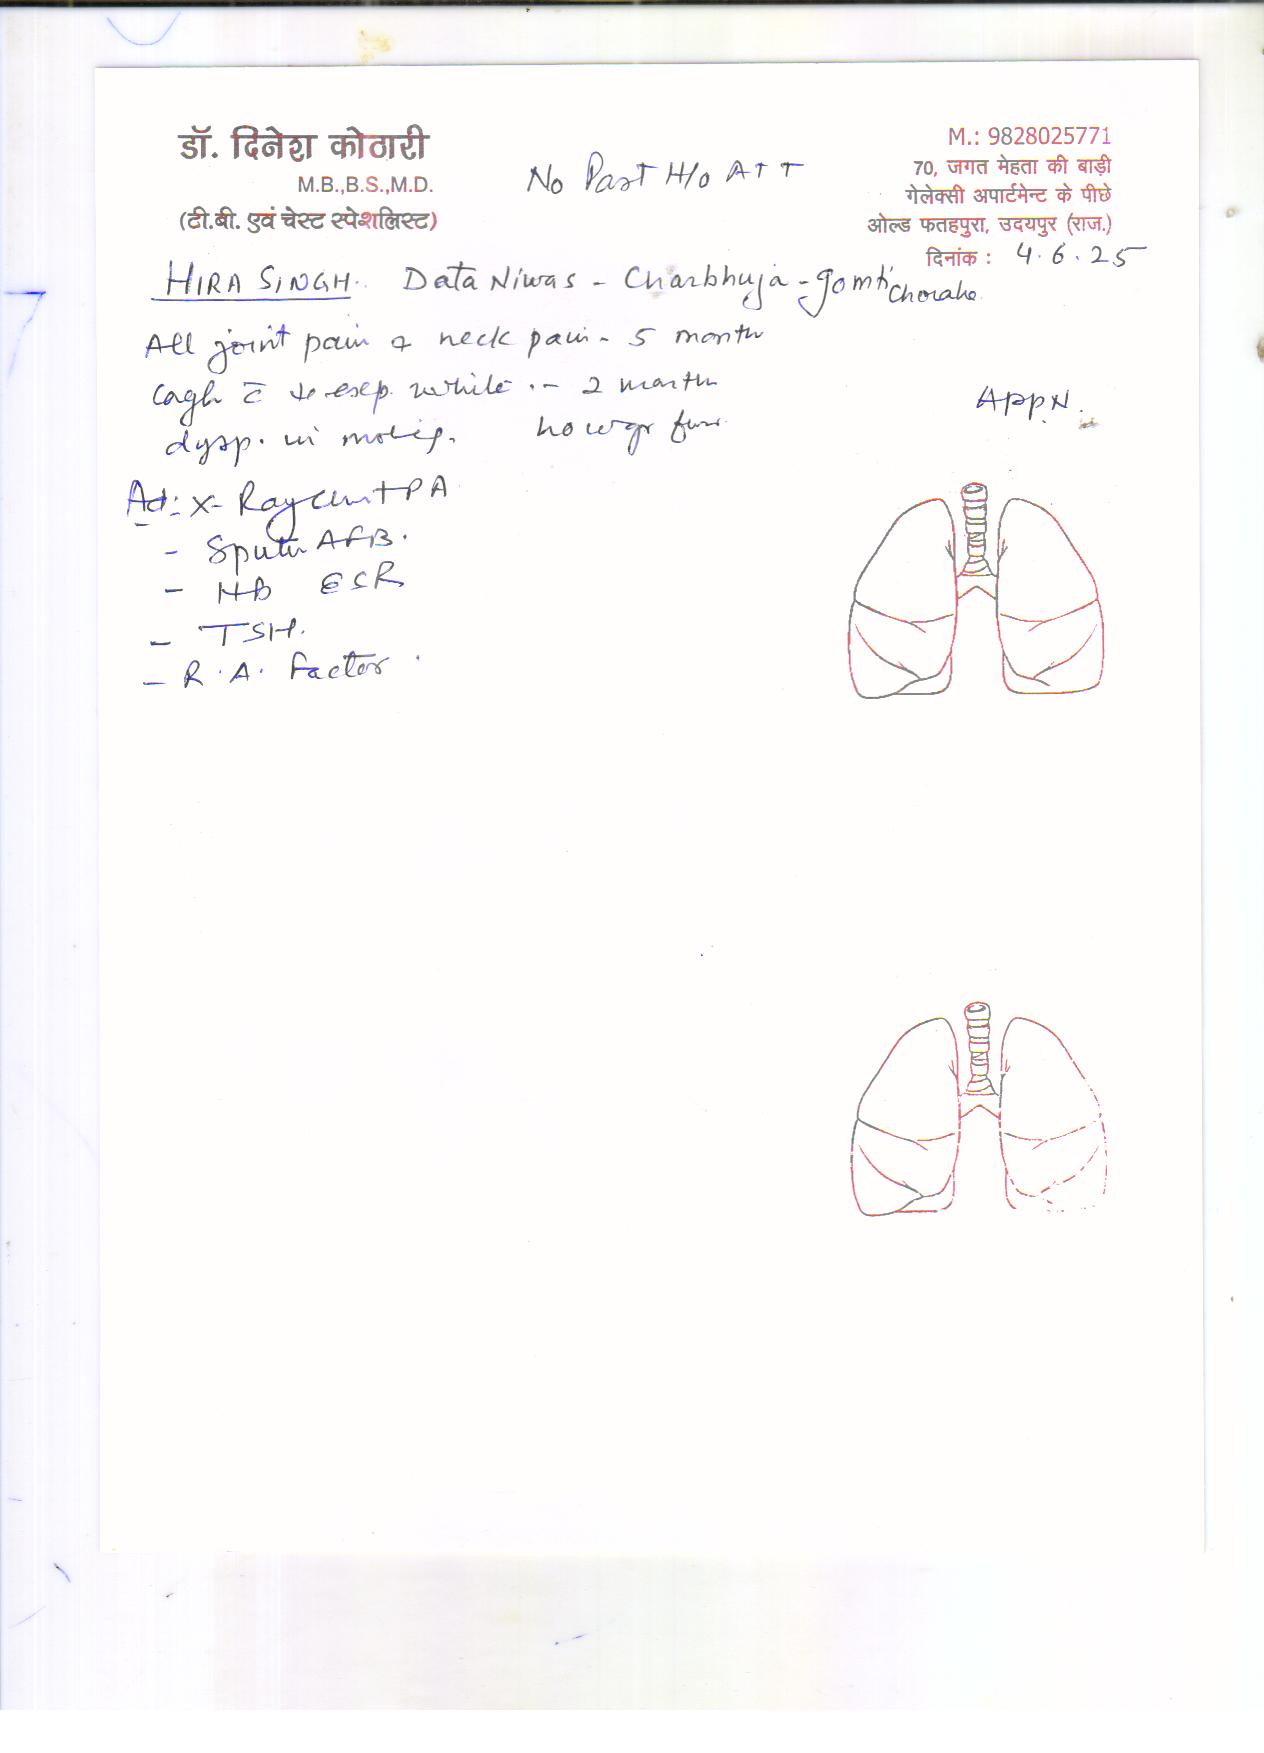 डॉ. दिनेश कोठारी
M.B.,B.S.,M.D.
(टी.बी. एवं चेस्ट स्पेशलिस्ट)
No Past H/o ATT
M.: 9828025771
70, जगत मेहता की बाड़ी
गेलेक्सी अपार्टमेन्ट के पीछे
ओल्ड फतहपुरा, उदयपुर (राज.)
दिनांक : 4.6.25
HIRA SINGH. Data Niwas - Charbhuja - gomti Choraha
All joint pain & neck pain - 5 month
Cogh c̄ exp. white - 2 month
dysp. in
APPN.
Ad: X-Ray chest PA
- Sputum AFB.
- Hb ESR
- TSH.
- R.A. Factor